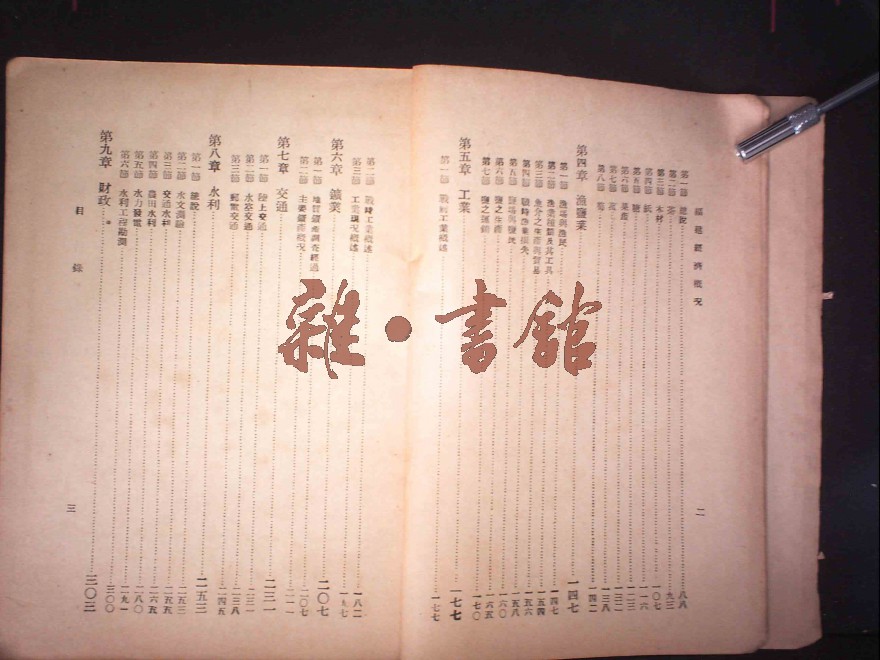 福建經濟概況
第一節 總說 八八
第二節 茶 九三
第三節 木材 一〇七
第四節 紙 一一六
第五節 糖 一二三
第六節 果產 一三二
第七節 一三八
第八節 一四二
第四章 漁鹽業 一四七
第一節 漁場與漁民 一四七
第二節 漁業種類及其工具
第三節 魚介之生產與貿易 一五四
第四節 戰時漁業損失 一五六
第五節 鹽場與鹽民 一五八
第六節 鹽之生產 一六五
第七節 鹽之運銷 一七〇
第五章 工業 一七七
第一節 戰前工業概述 一七七
二
第二節 戰時工業概述 一八二
第三節 工業現況概述 一九七
第六章 鑛業 二〇七
第一節 地質鑛產調查經過 二〇七
第二節 主要鑛產概況 二一一
第七章 交通 二三一
第一節 陸上交通 二三一
第二節 水空交通 二三八
第三節 郵電交通 二四五
第八章 水利 二五三
第一節 總說 二五三
第二節 水文測驗 二五五
第三節 交通水利 二六五
第四節 農田水利 二八〇
第五節 水力發電 二九一
第六節 水利工程勘測 三〇〇
第九章 財政 三〇三
目錄
三
雜•書館